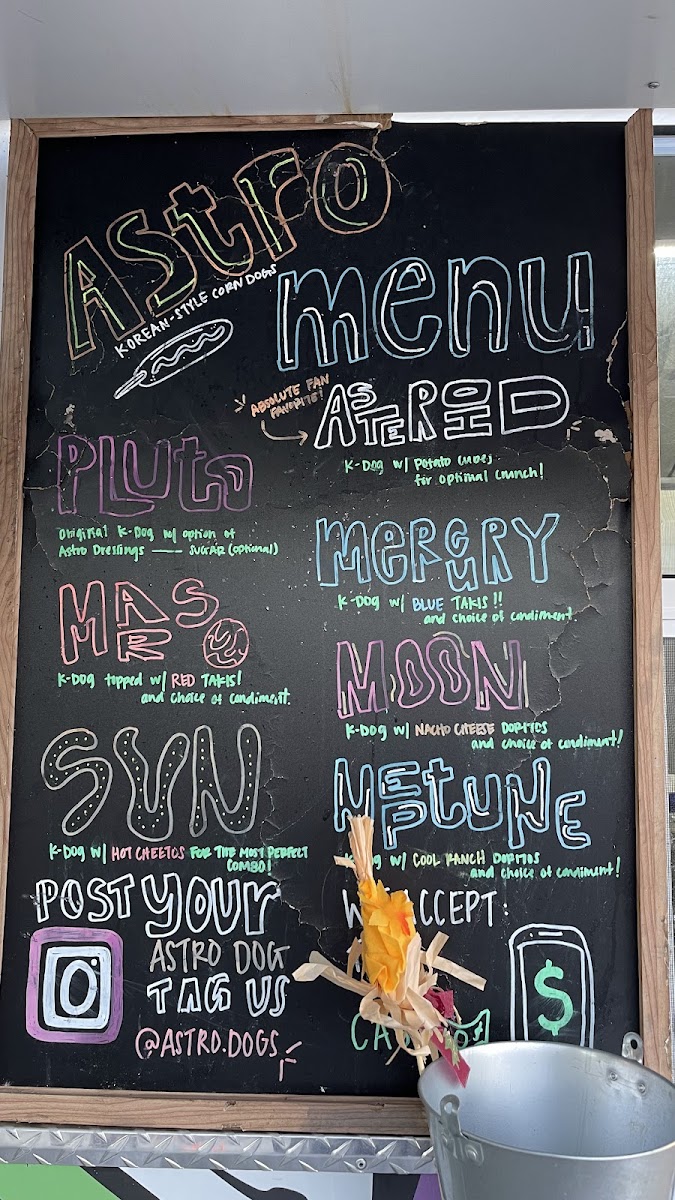 ASTRO
KOREAN-STYLE CORN DOGS
menu
ABSOLUTE FAN
FAVORITE!
ASTEROID
K-DOG w/ Potato cubes
for optimal crunch!
PLUTO
Original K-Dog w/ option of
Astro Dressings — SUGAR (optional)
MERCURY
K-DOG w/ BLUE TAKIS!!
and choice of condiment
MARS
K-DOG topped w/ RED TAKIS!
and choice of condiment.
MOON
K-DOG w/ NACHO CHEESE DORITOS
and choice of condiment!
SUN
K-DOG w/ HOT CHEETOS FOR THE MOST PERFECT
COMBO!
NEPTUNE
w/ COOL RANCH DORITOS
and choice of condiment!
POST YOUR
ASTRO DOG
TAG US
@ASTRO.DOGS
W ACCEPT:
$
CA